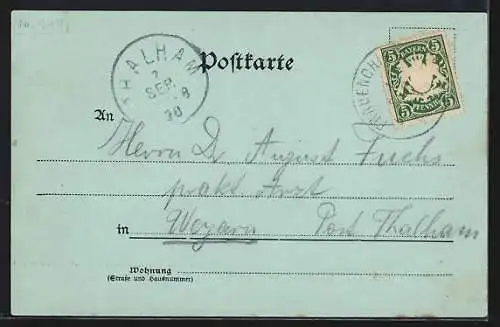 THALHAM
SEP.
Postkarte
5 BAYERN 5
5 PFENNIG 5
An
Herrn Dr August Fuchs
prakt Arzt
in Weyarn Post Thalham
Wohnung
(Straße und Hausnummer)